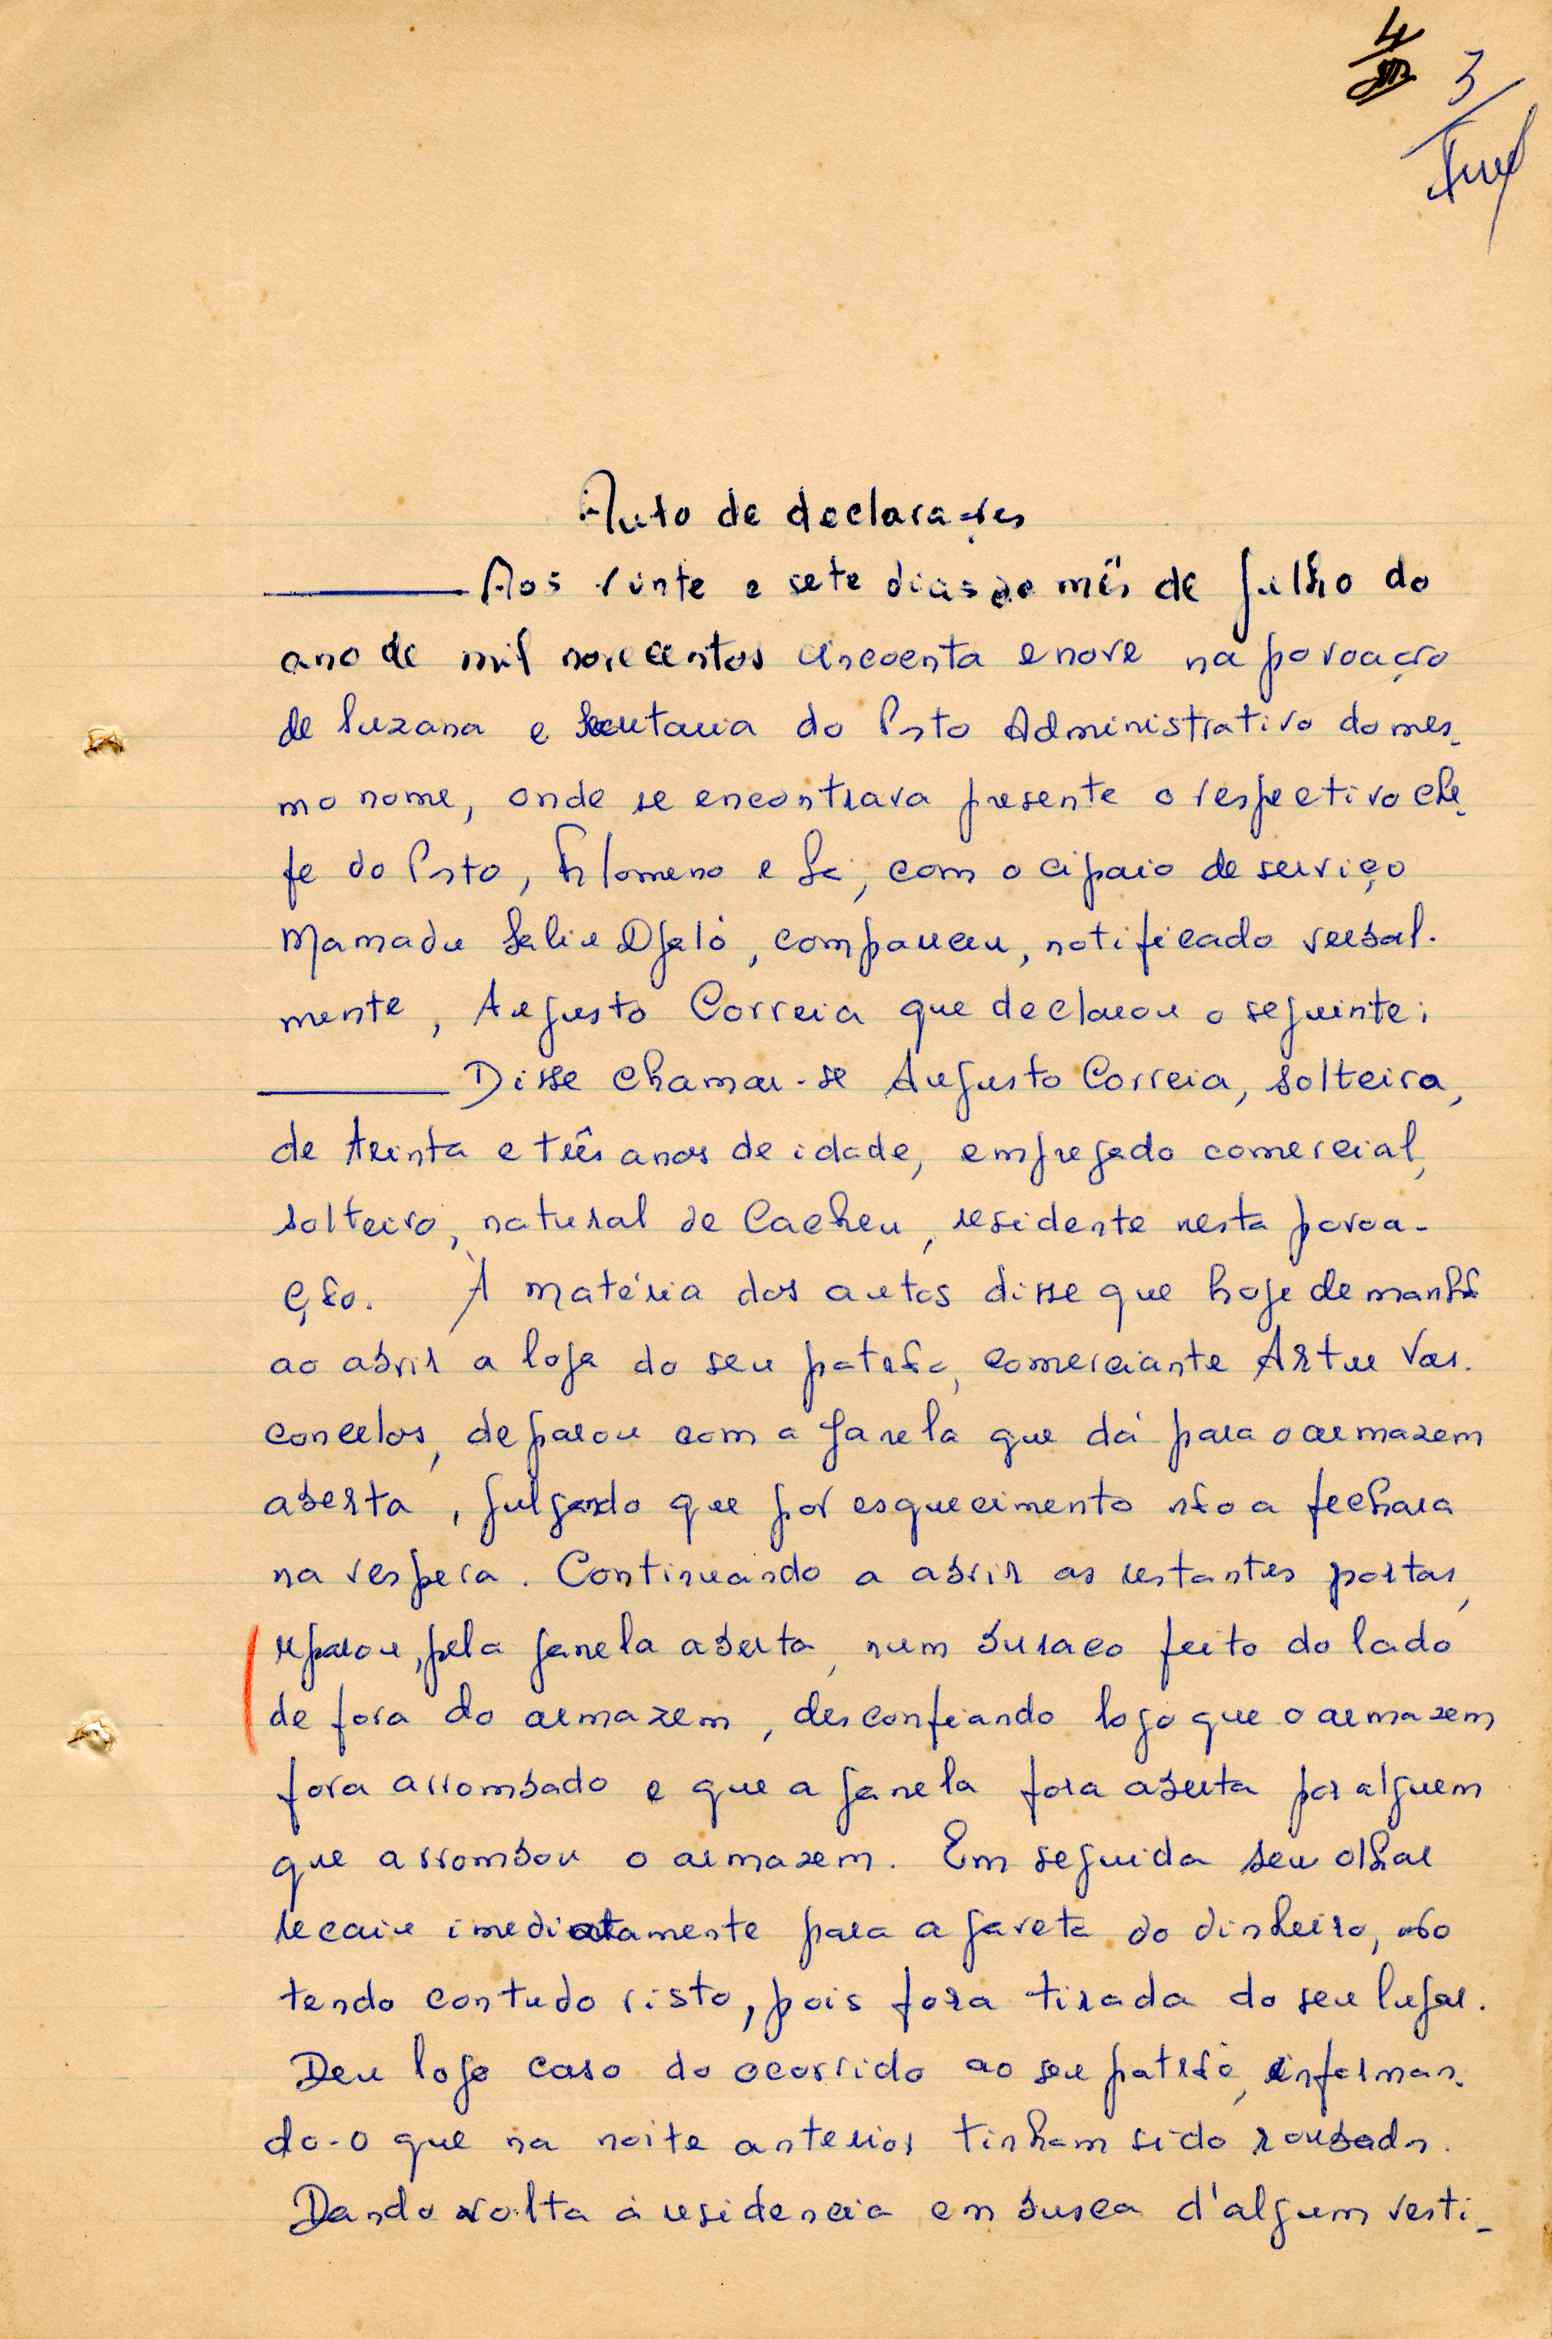 4
3
Auto de declarações
Aos vinte e sete dias do mês de julho do
ano de mil novecentos cincoenta e nove na povoação
de Suzana e Secretaria do Posto Administrativo do mes-
mo nome, onde se encontrava presente o respectivo che-
fe do Posto, Filomeno e Sá, com o cipaio de serviço
Mamadu Saliu Djaló, compareceu, notificado verbal-
mente, Augusto Correia que declarou o seguinte:
Disse chamar-se Augusto Correia, solteiro,
de trinta e três anos de idade, empregado comercial,
solteiro, natural de Cacheu, residente nesta povoa-
ção. À matéria dos autos disse que hoje de manhã
ao abrir a loja do seu patrão, comerciante Artur Vas-
concelos, deparou com a janela que dá para o armazem
aberta, julgando que por esquecimento não a fechara
na vespera. Continuando a abrir as restantes portas,
reparou, pela janela aberta, num buraco feito do lado
de fora do armazem, desconfiando logo que o armazem
fora arrombado e que a janela fora aberta por alguem
que arrombou o armazem. Em seguida seu olhar
recaiu imediatamente para a gaveta do dinheiro, não
tendo contudo visto, pois fora tirada do seu lugar.
Deu logo caso do ocorrido ao seu patrão, informan-
do-o que na noite anterior tinham sido roubados.
Dando volta á residencia em busca d'algum vesti-